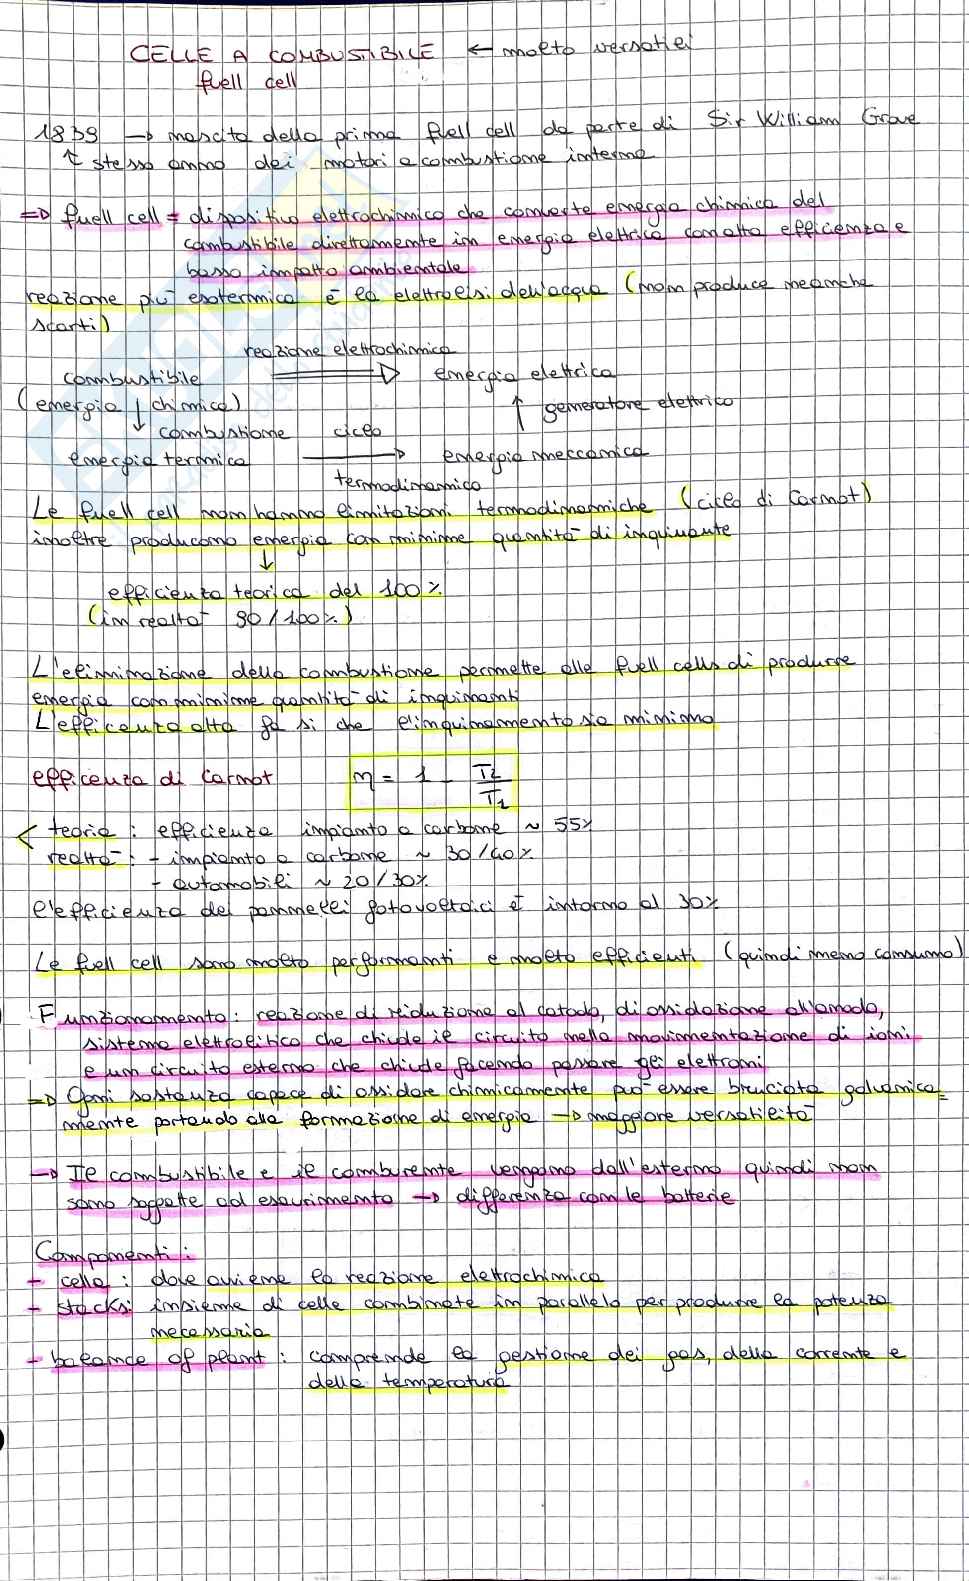 CELLE A COMBUSTIBILE ← molto versatili
fuell cell
1839 → nascita della prima fuell cell da parte di Sir William Grove
↑ stesso anno dei motori a combustione interna
⇒ fuell cell = dispositivo elettrochimico che converte energia chimica del
combustibile direttamente in energia elettrica con alta efficenza e
basso impatto ambientale
reazione più esotermica è la elettrolisi dell'acqua (non produce neanche
scarti)
reazione elettrochimica
combustibile ⇒ energia elettrica
(energia ↓ chimica) ↑ generatore elettrico
combustione ciclo
energia termica → energia meccanica
termodinamico
Le fuell cell non hanno limitazioni termodinamiche (ciclo di Carnot)
inoltre producono energia con minime quantità di inquinante
↓
efficienza teorica del 100%
(in realtà 90/100%)
L'eliminazione della combustione permette alle fuell cells di produrre
energia con minime quantità di inquinanti
L'efficenza alta fa si che l'inquinamento sia minimo
efficenza di Carnot η = 1 - T2/T1
< teoria : efficienza impianto a carbone ~ 55%
realtà : - impianto a carbone ~ 30/40%
- automobili ~ 20/30%
l'efficienza dei pannelli fotovoltaici è intorno al 30%
Le fuell cell sono molto performanti e molto efficienti (quindi meno consumo)
Funzionamento: reazione di riduzione al catodo, di ossidazione all'anodo,
sistema elettrolitico che chiude il circuito nella movimentazione di ioni
e un circuito esterno che chiude facendo passare gli elettroni
⇒ Ogni sostanza capace di ossidare chimicamente può essere bruciata galvanica=
mente portando alla formazione di energia → maggiore versatilità
→ Il combustibile e il comburente vengono dall'esterno quindi non
sono soggette ad esaurimento → differenza con le batterie
Componenti :
- cella : dove avviene la reazione elettrochimica
- stacks: insieme di celle combinate in parallelo per produrre la potenza
necessaria
- balance of plant : comprende la gestione dei gas, della corrente e
della temperatura